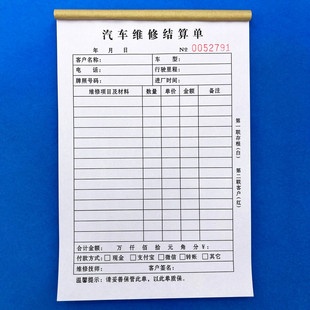 汽车维修结算单
年 月 日 № 0052791
客户名称: 车 型:
电 话: 行驶里程:
牌照号码: 进厂时间:
维修项目及材料 数量 单价 金额 备注
合计金额: 万 仟 佰 拾 元 角 分 ¥:
付款方式: □现金 □支付宝 □微信 □转帐 □其它
维修技师: 客户签名:
温馨提示: 请妥善保管此单，以此单质保。
第一联存根(白) 第二联客户(红)